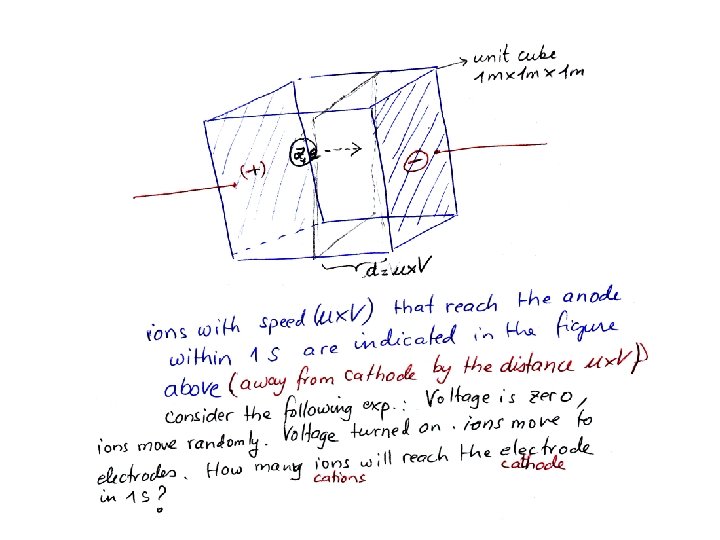 unit cube
1m x 1m x 1m
(+)
z₊e
-
d = uxV
ions with speed (uxV) that reach the anode
within 1 s are indicated in the figure
above (away from cathode by the distance uxV)
Consider the following exp.: Voltage is zero,
ions move randomly. Voltage turned on. ions move to
electrodes. How many ions will reach the electrode
cations cathode
in 1 s?